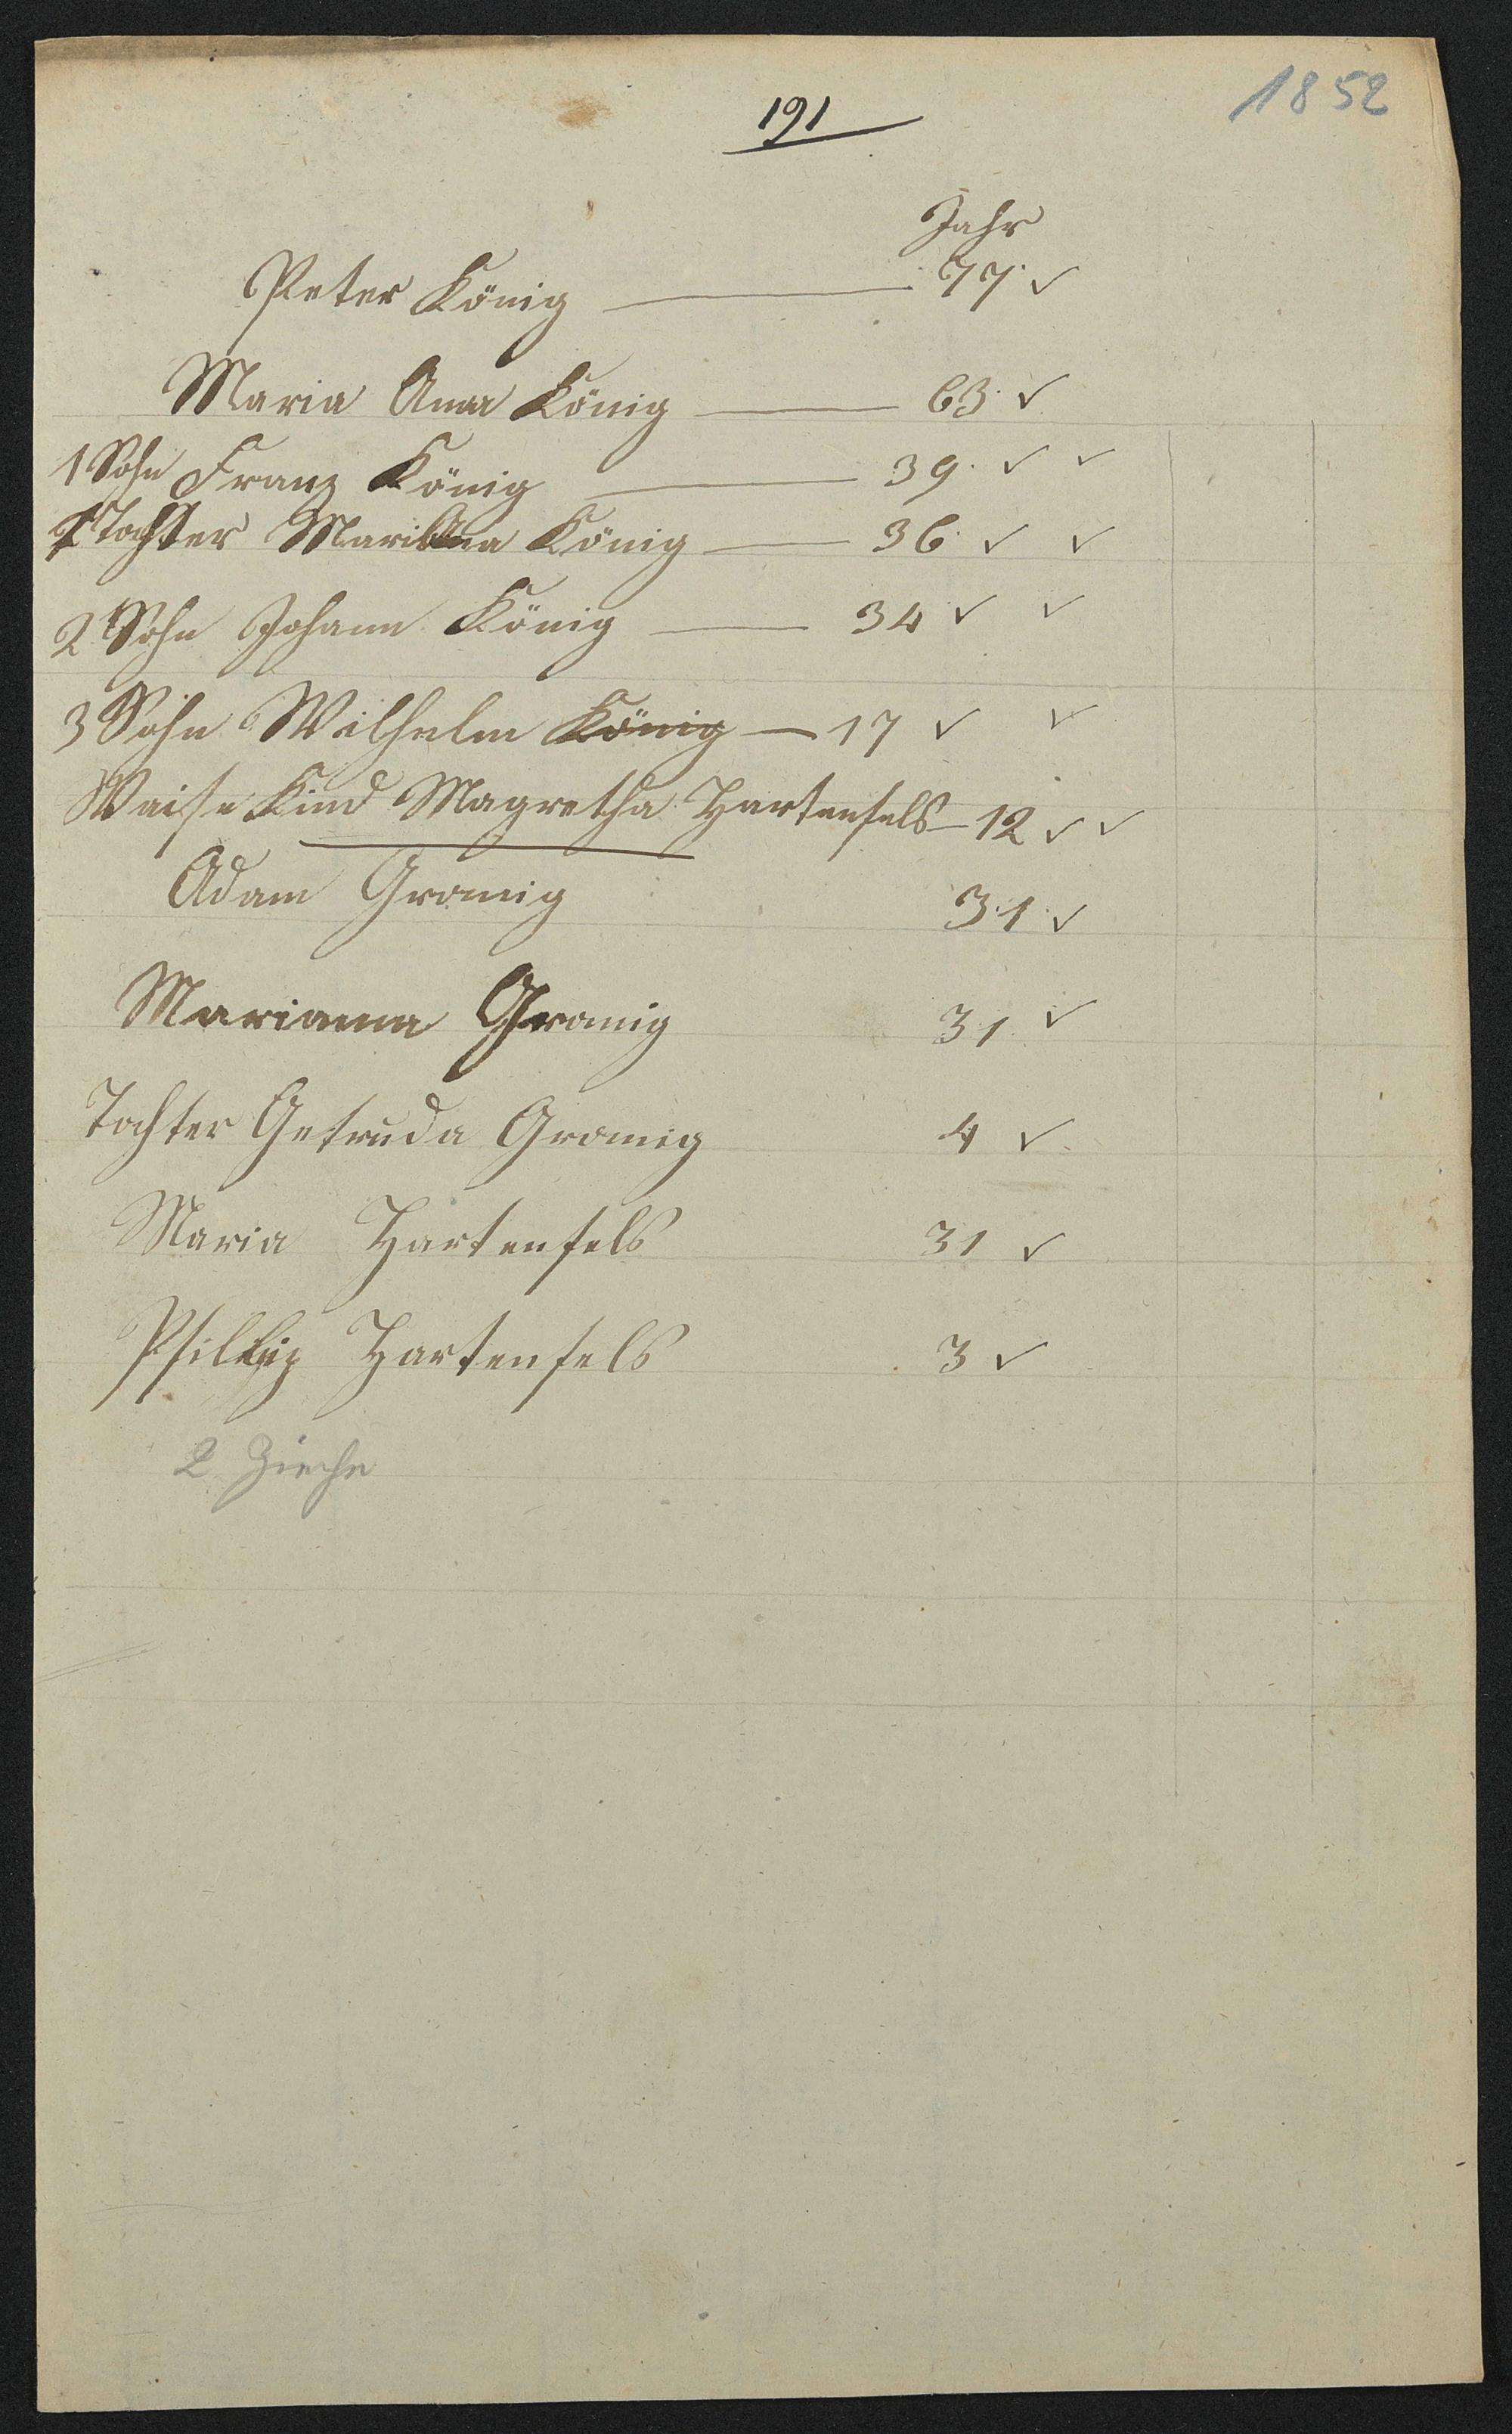 1852
191
Jahr
Peter König — 77 ✓
Maria Anna König — 63 ✓
1 Sohn Franz König — 39 ✓ ✓
1 Tochter Mariana König — 36 ✓ ✓
2 Sohn Johann König — 34 ✓ ✓
3 Sohn Wilhelm König — 17 ✓ ✓
Waise Kind Magretha Hartenfels — 12 ✓ ✓
Adam Gromig 31 ✓
Marianna Gromig 31 ✓
Tochter Getruda Gromig 4 ✓
Maria Hartenfels 31 ✓
Phillip Hartenfels 3 ✓
2